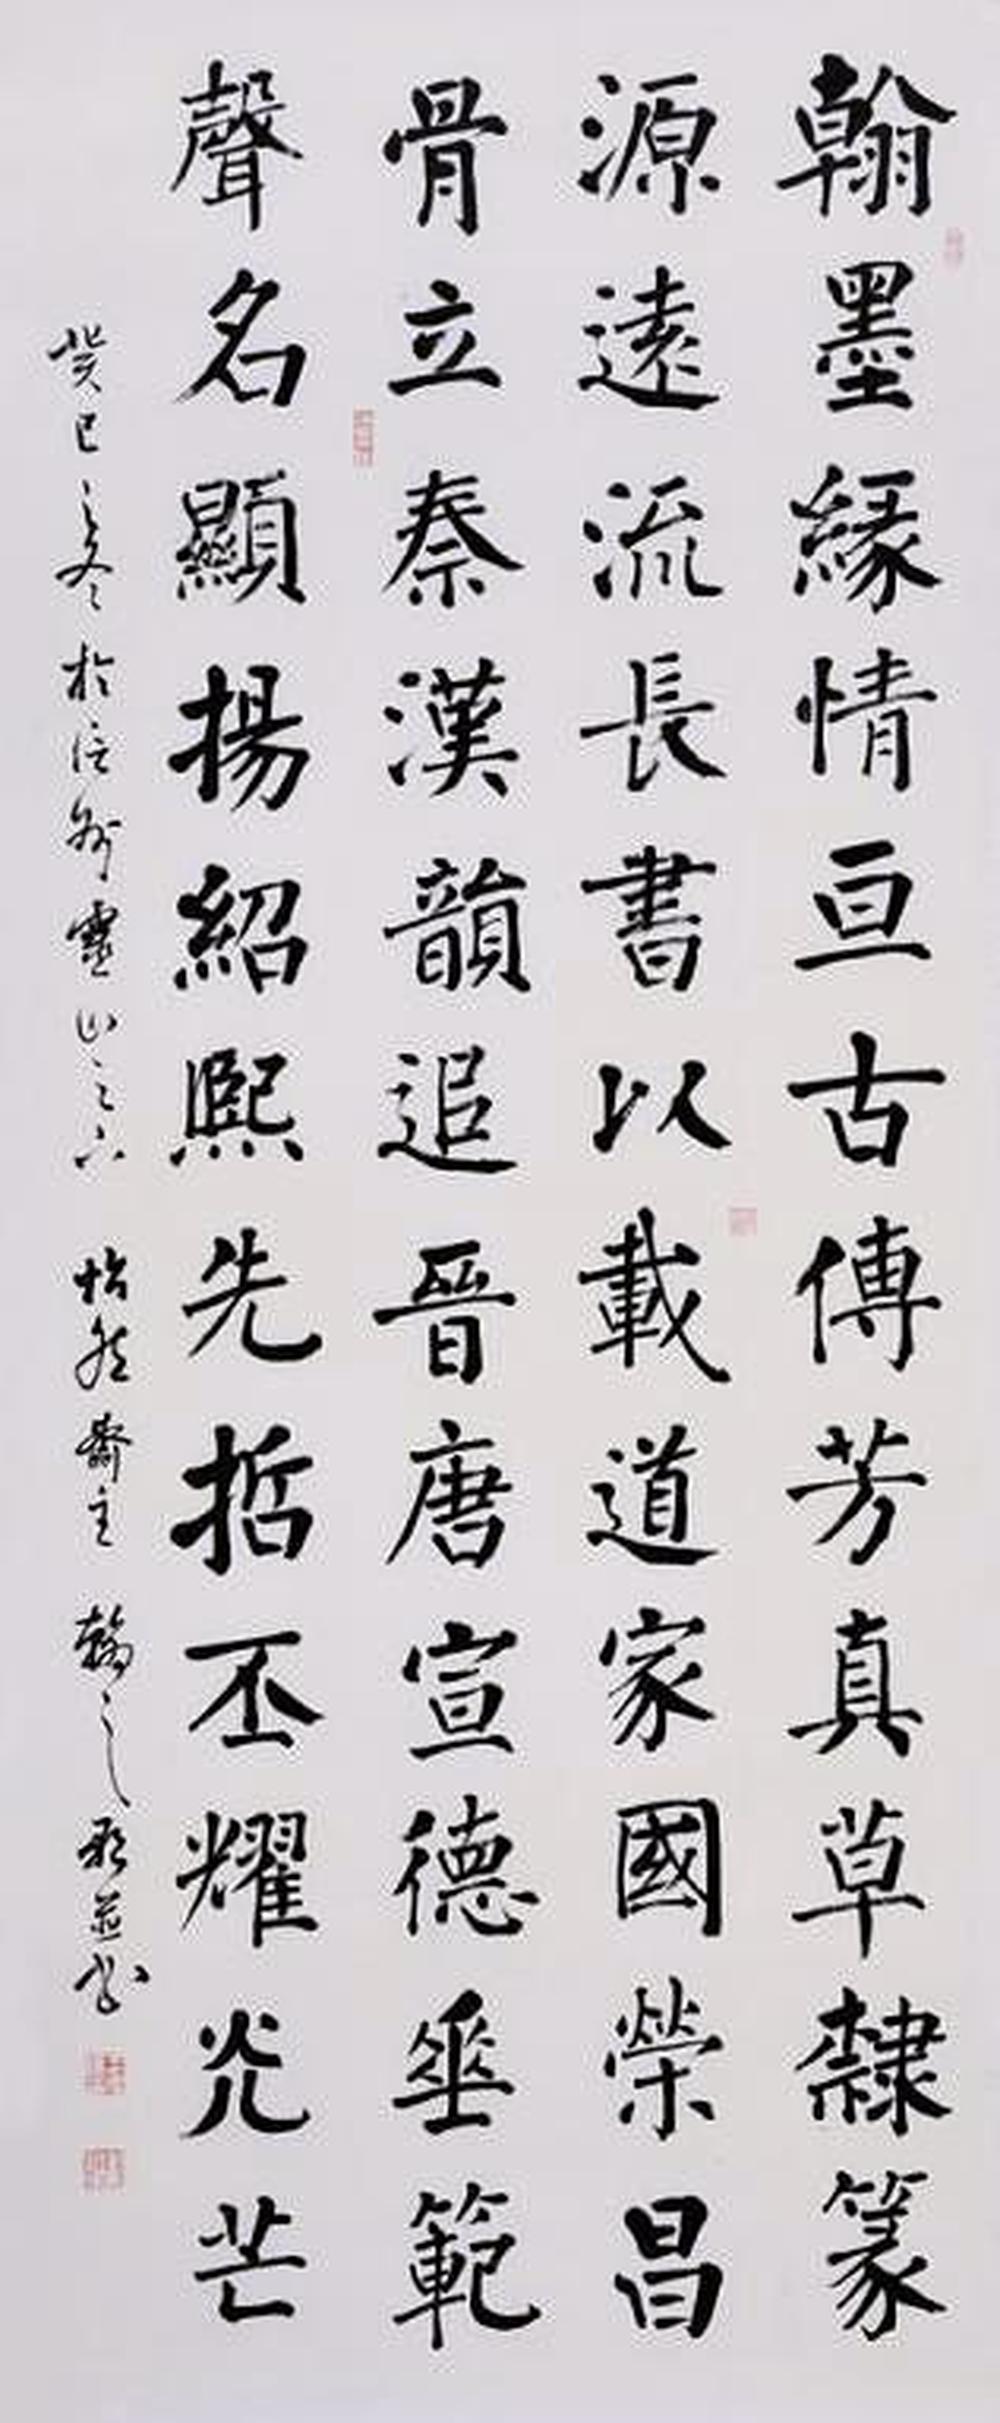 翰墨緣情亘古傳芳真草隸篆
源遠流長書以載道家國榮昌
骨立秦漢韻追晉唐宣德垂範
聲名顯揚紹熙先哲丕耀光芒
癸巳之冬於信州靈山之六 怡然齋主 翰之 並書